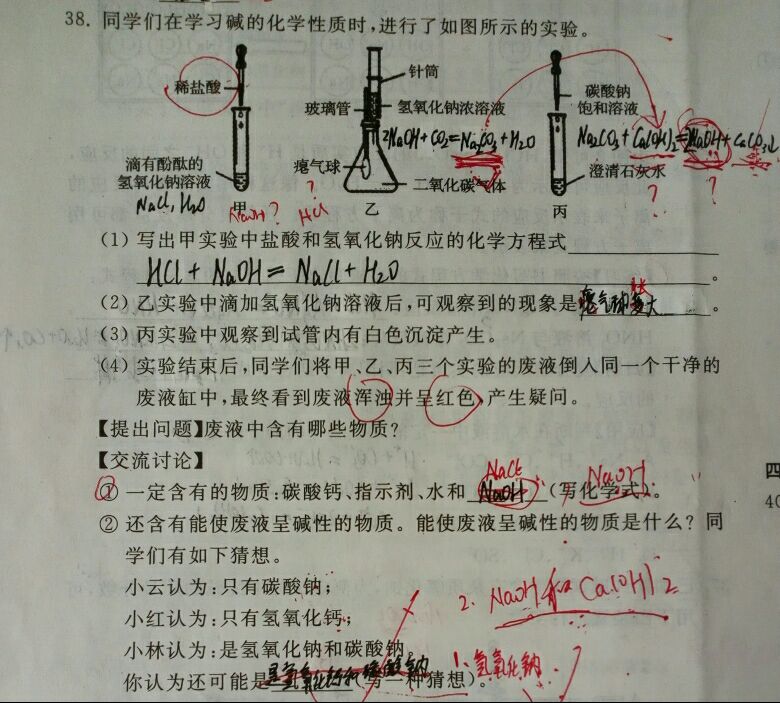 38. 同学们在学习碱的化学性质时,进行了如图所示的实验。
稀盐酸
滴有酚酞的
氢氧化钠溶液
甲
NaCl, H₂O
NaOH?
HCl
?
针筒
玻璃管
氢氧化钠浓溶液
2NaOH+CO₂=Na₂CO₃+H₂O
瘪气球
二氧化碳气体
乙
碳酸钠
饱和溶液
Na₂CO₃+Ca(OH)₂=2NaOH+CaCO₃↓
澄清石灰水
丙
?
?
(1) 写出甲实验中盐酸和氢氧化钠反应的化学方程式
HCl + NaOH = NaCl + H₂O 。
(2) 乙实验中滴加氢氧化钠溶液后,可观察到的现象是 瘪气球变大 。
(3) 丙实验中观察到试管内有白色沉淀产生。
(4) 实验结束后,同学们将甲、乙、丙三个实验的废液倒入同一个干净的
废液缸中,最终看到废液浑浊并呈红色,产生疑问。
【提出问题】废液中含有哪些物质?
【交流讨论】
NaCl
NaOH
① 一定含有的物质:碳酸钙、指示剂、水和 NaOH (写化学式)。
② 还含有能使废液呈碱性的物质。能使废液呈碱性的物质是什么? 同
学们有如下猜想。
小云认为:只有碳酸钠;
小红认为:只有氢氧化钙;
2. NaOH和Ca(OH)₂
小林认为:是氢氧化钠和碳酸钠。
1、氢氧化钠
你认为还可能是 (写一种猜想)。
四
40